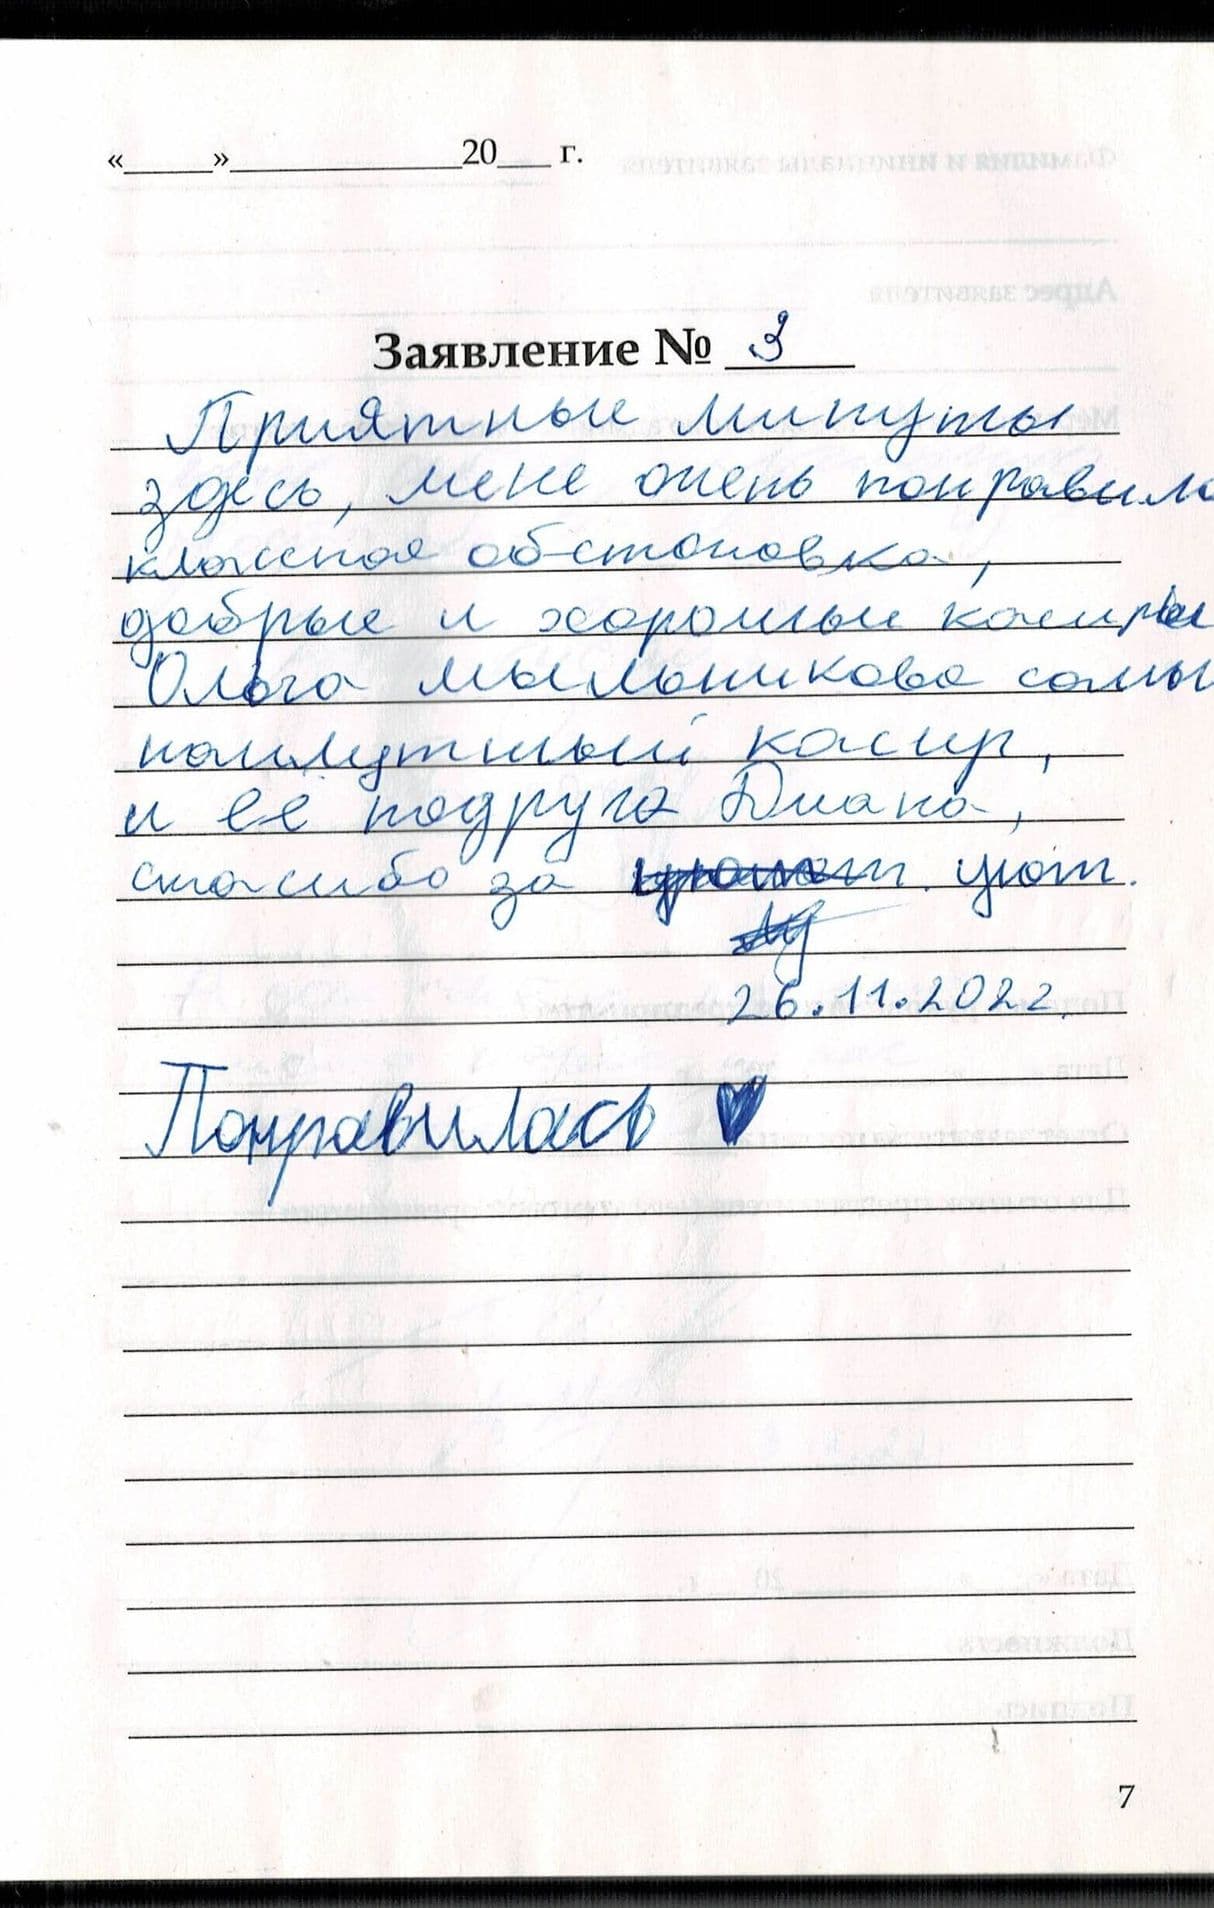 «____»__________20___ г.
Заявление № 3
Приятные минуты
здесь, мене очень понравила
классная обстановка,
добрые и хорошые касиры
Ольга мыльникова самы
наилутшый касир,
и её подруга Диана,
спасибо за уют.
26.11.2022
Понравилась ♥
7